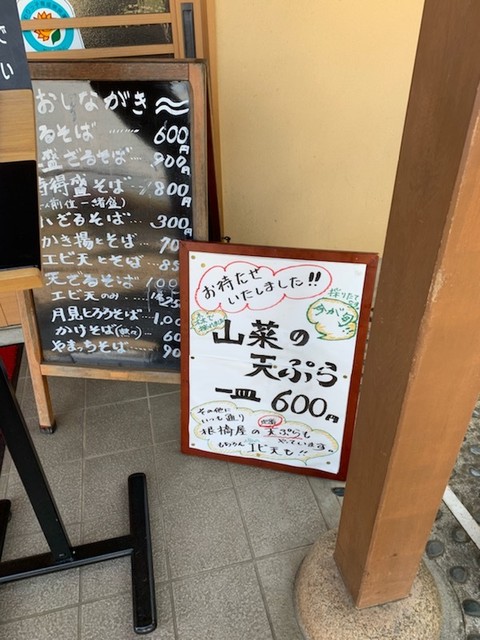 でい
おしながき
るそば 600円
盛ざるそば 900円
特得盛そば 1800円
ざるそば 300円
かき揚とそば 70
エビ天とそば 85
天ざるそば 100
エビ天のみ
月見とろうそば 1.00
かけそば 60
やまっちそば 90
お待たせ
いたしました!!
採りたて
今が旬
山菜の
天ぷら
一皿 600円
その他に
いつも通り
根橋屋の 天ぷらも
やっています。
もちろん エビ天も!!